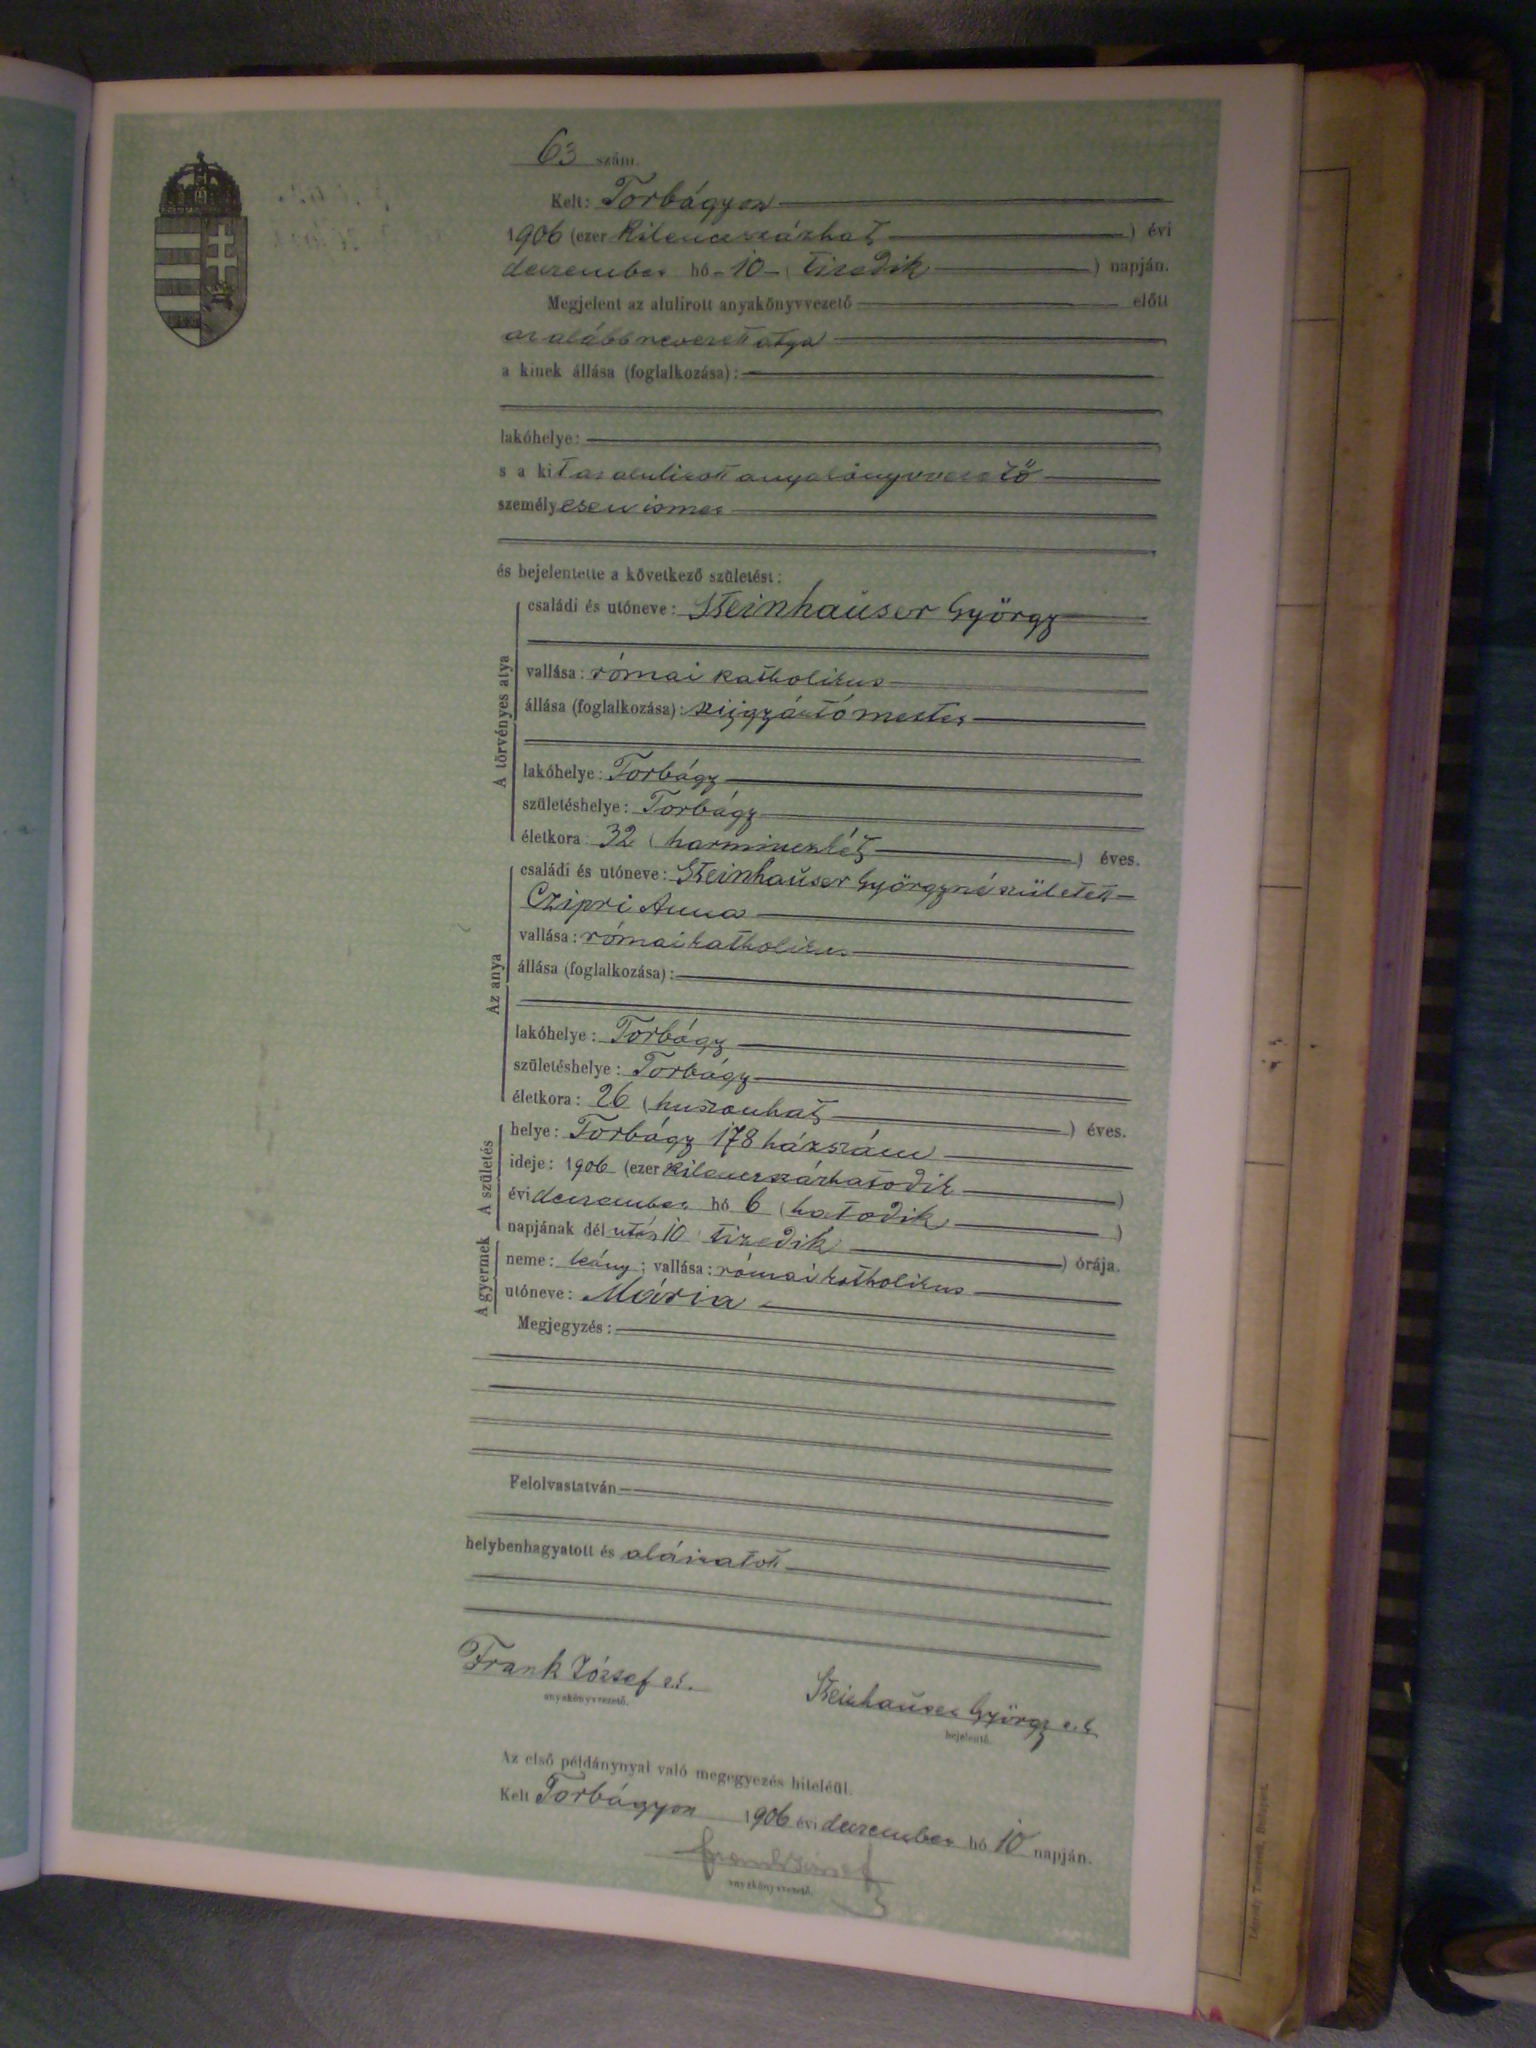 63 szám.
Kelt: Torbágyon
1906 (ezer kilenczszázhat) évi
deczember hó 10 (tizedik) napján.
Megjelent az alulirott anyakönyvvezető előtt
az alább nevezett atya
a kinek állása (foglalkozása):
lakóhelye:
s a kit az alulirott anyakönyvvezető
személyesen ismer
és bejelentette a következő születést:
A törvényes atya
családi és utóneve: Steinhauser György
vallása: római katholikus
állása (foglalkozása): szijgyártó mester
lakóhelye: Torbágy
születéshelye: Torbágy
életkora: 32 (harminczkét) éves.
Az anya
családi és utóneve: Steinhauser Györgyné született
Czipri Anna
vallása: római katholikus
állása (foglalkozása):
lakóhelye: Torbágy
születéshelye: Torbágy
életkora: 26 (huszonhat) éves.
A születés
helye: Torbágy 178 házszám
ideje: 1906 (ezer kilenczszázhatodik)
évi deczember hó 6 (hatodik)
napjának dél után 10 (tizedik) órája.
A gyermek
neme: leány; vallása: római katholikus
utóneve: Mária
Megjegyzés:
Felolvastatván
helybenhagyatott és aláiratott
Frank József s.k.
anyakönyvvezető.
Steinhauser György s.k.
bejelentő.
Az első példánynyal való megegyezés hiteléül.
Kelt Torbágyon 1906 évi deczember hó 10 napján.
Frank József
anyakönyvvezető.